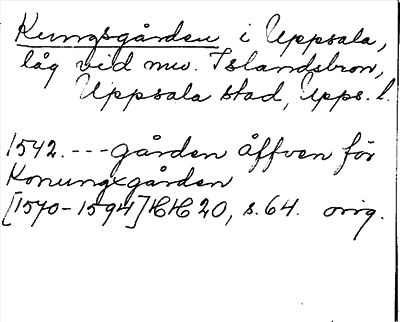 Kungsgården i Uppsala,
låg vid nuv. Islandsbron,
Uppsala stad, Upps. l.
1542. --- gården åffven för
Konungxgården
[1570-1594] HH 20, s. 64. orig.